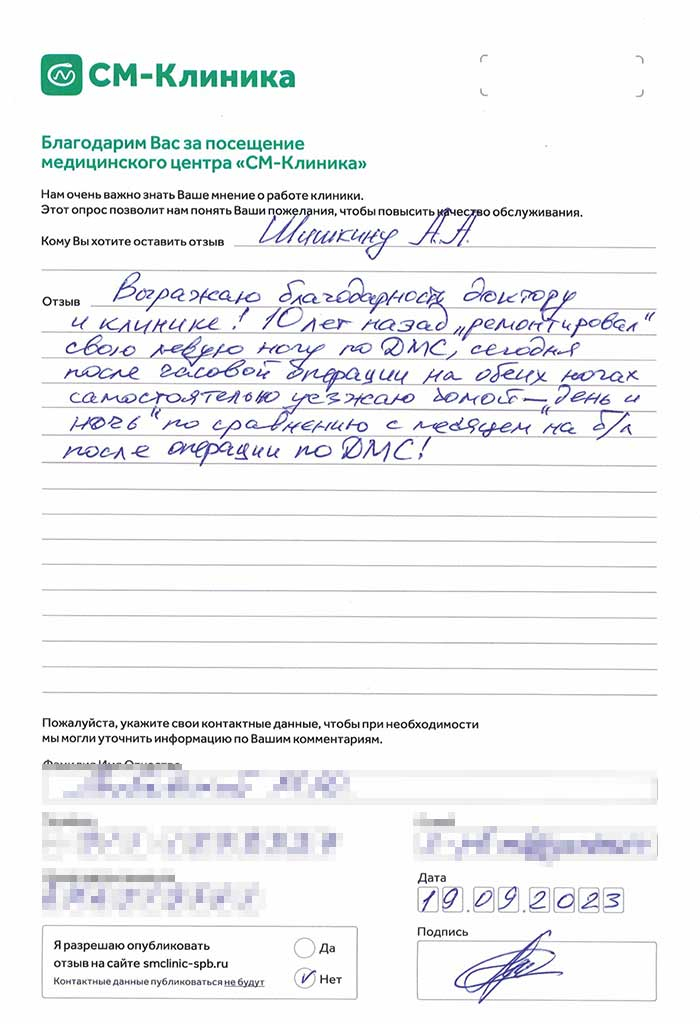 СМ-Клиника
Благодарим Вас за посещение
медицинского центра «СМ-Клиника»
Нам очень важно знать Ваше мнение о работе клиники.
Этот опрос позволит нам понять Ваши пожелания, чтобы повысить качество обслуживания.
Кому Вы хотите оставить отзыв Шишкину А.А.
Отзыв Выражаю благодарность доктору
и клинике! 10 лет назад „ремонтировал“
свою левую ногу по ДМС, сегодня
после часовой операции на обеих ногах
самостоятельно уезжаю домой – „день и
ночь“ по сравнению с месяцем на б/л
после операции по ДМС!
Пожалуйста, укажите свои контактные данные, чтобы при необходимости
мы могли уточнить информацию по Вашим комментариям.
Фамилия Имя Отчество
Дата
19.09.2023
Подпись
Я разрешаю опубликовать
отзыв на сайте smclinic-spb.ru
Контактные данные публиковаться не будут
Да
Нет